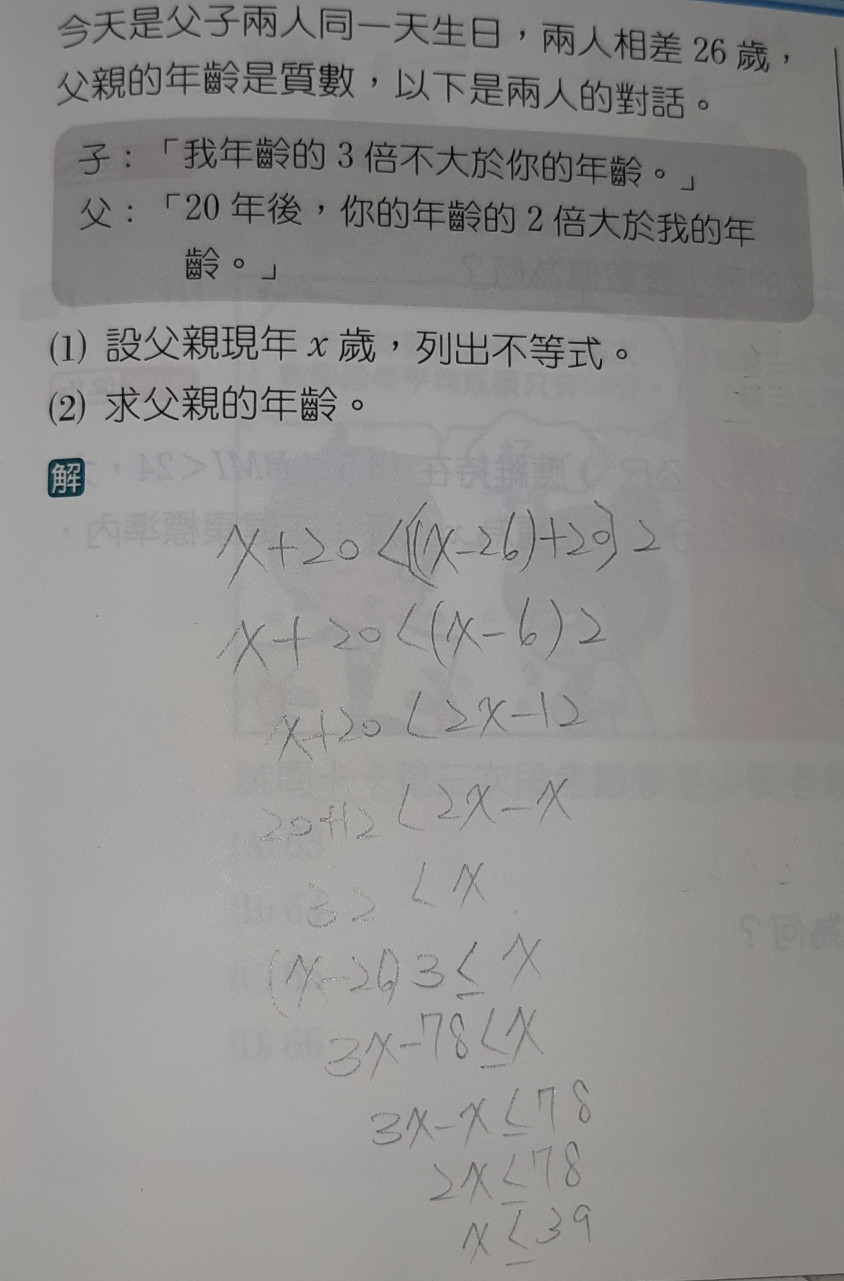 今天是父子兩人同一天生日，兩人相差 26 歲，
父親的年齡是質數，以下是兩人的對話。
子：「我年齡的 3 倍不大於你的年齡。」
父：「20 年後，你的年齡的 2 倍大於我的年
齡。」
(1) 設父親現年 x 歲，列出不等式。
(2) 求父親的年齡。
解
x+20<[(x-26)+20]2
x+20<(x-6)2
x+20<2x-12
20+12<2x-x
32<x
(x-26)3≤x
3x-78≤x
3x-x≤78
2x≤78
x≤39